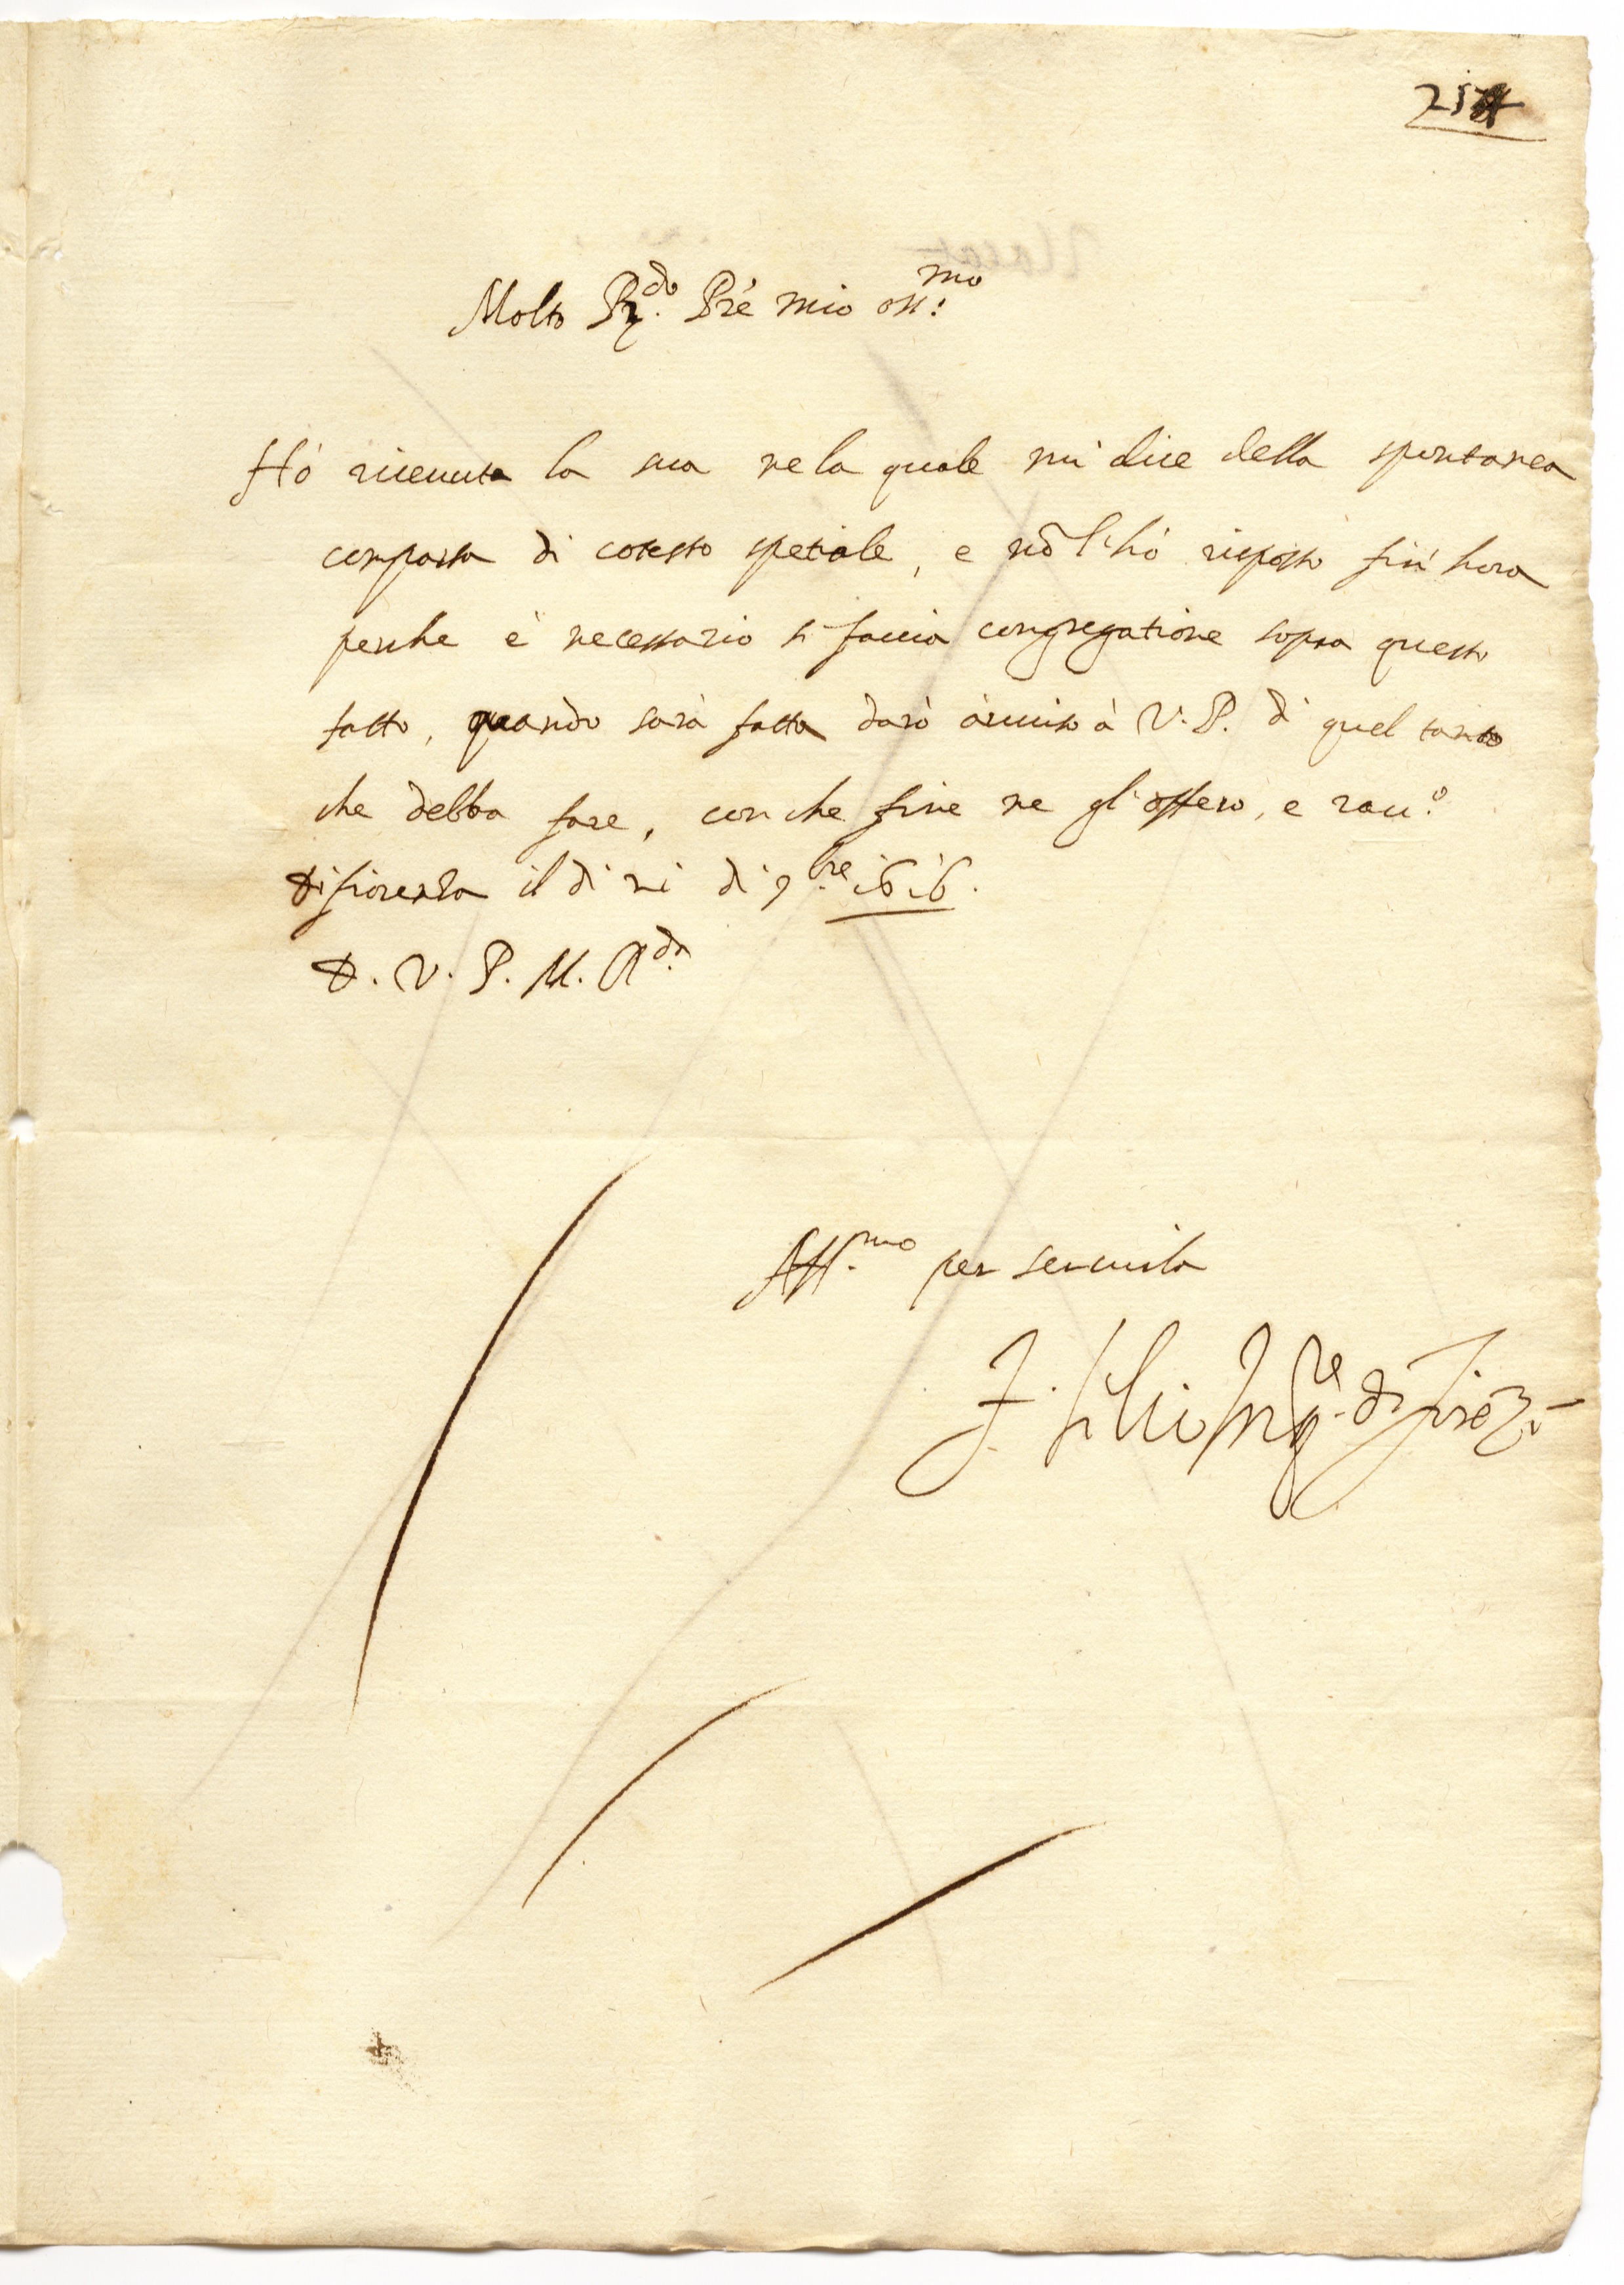 Molto R.do Pre mio oss:mo
Hò riceuuta la sua ne la quale mi dice della spontanea
comparsa di cotesto spetiale, e nõ l'hò risposto fin'hora
perche è necessario si faccia congregatione sopra questo
fatto, quando sarà fatta darò auuiso à V. P. di quel tanto
che debba fare, con che fine me gl'offero, e racc.o
Di fiorenza il dì vi di 9.bre 1616.
D. V. P. M. R.da
Aff.mo per seruirla
F. Inq.re di Firẽza